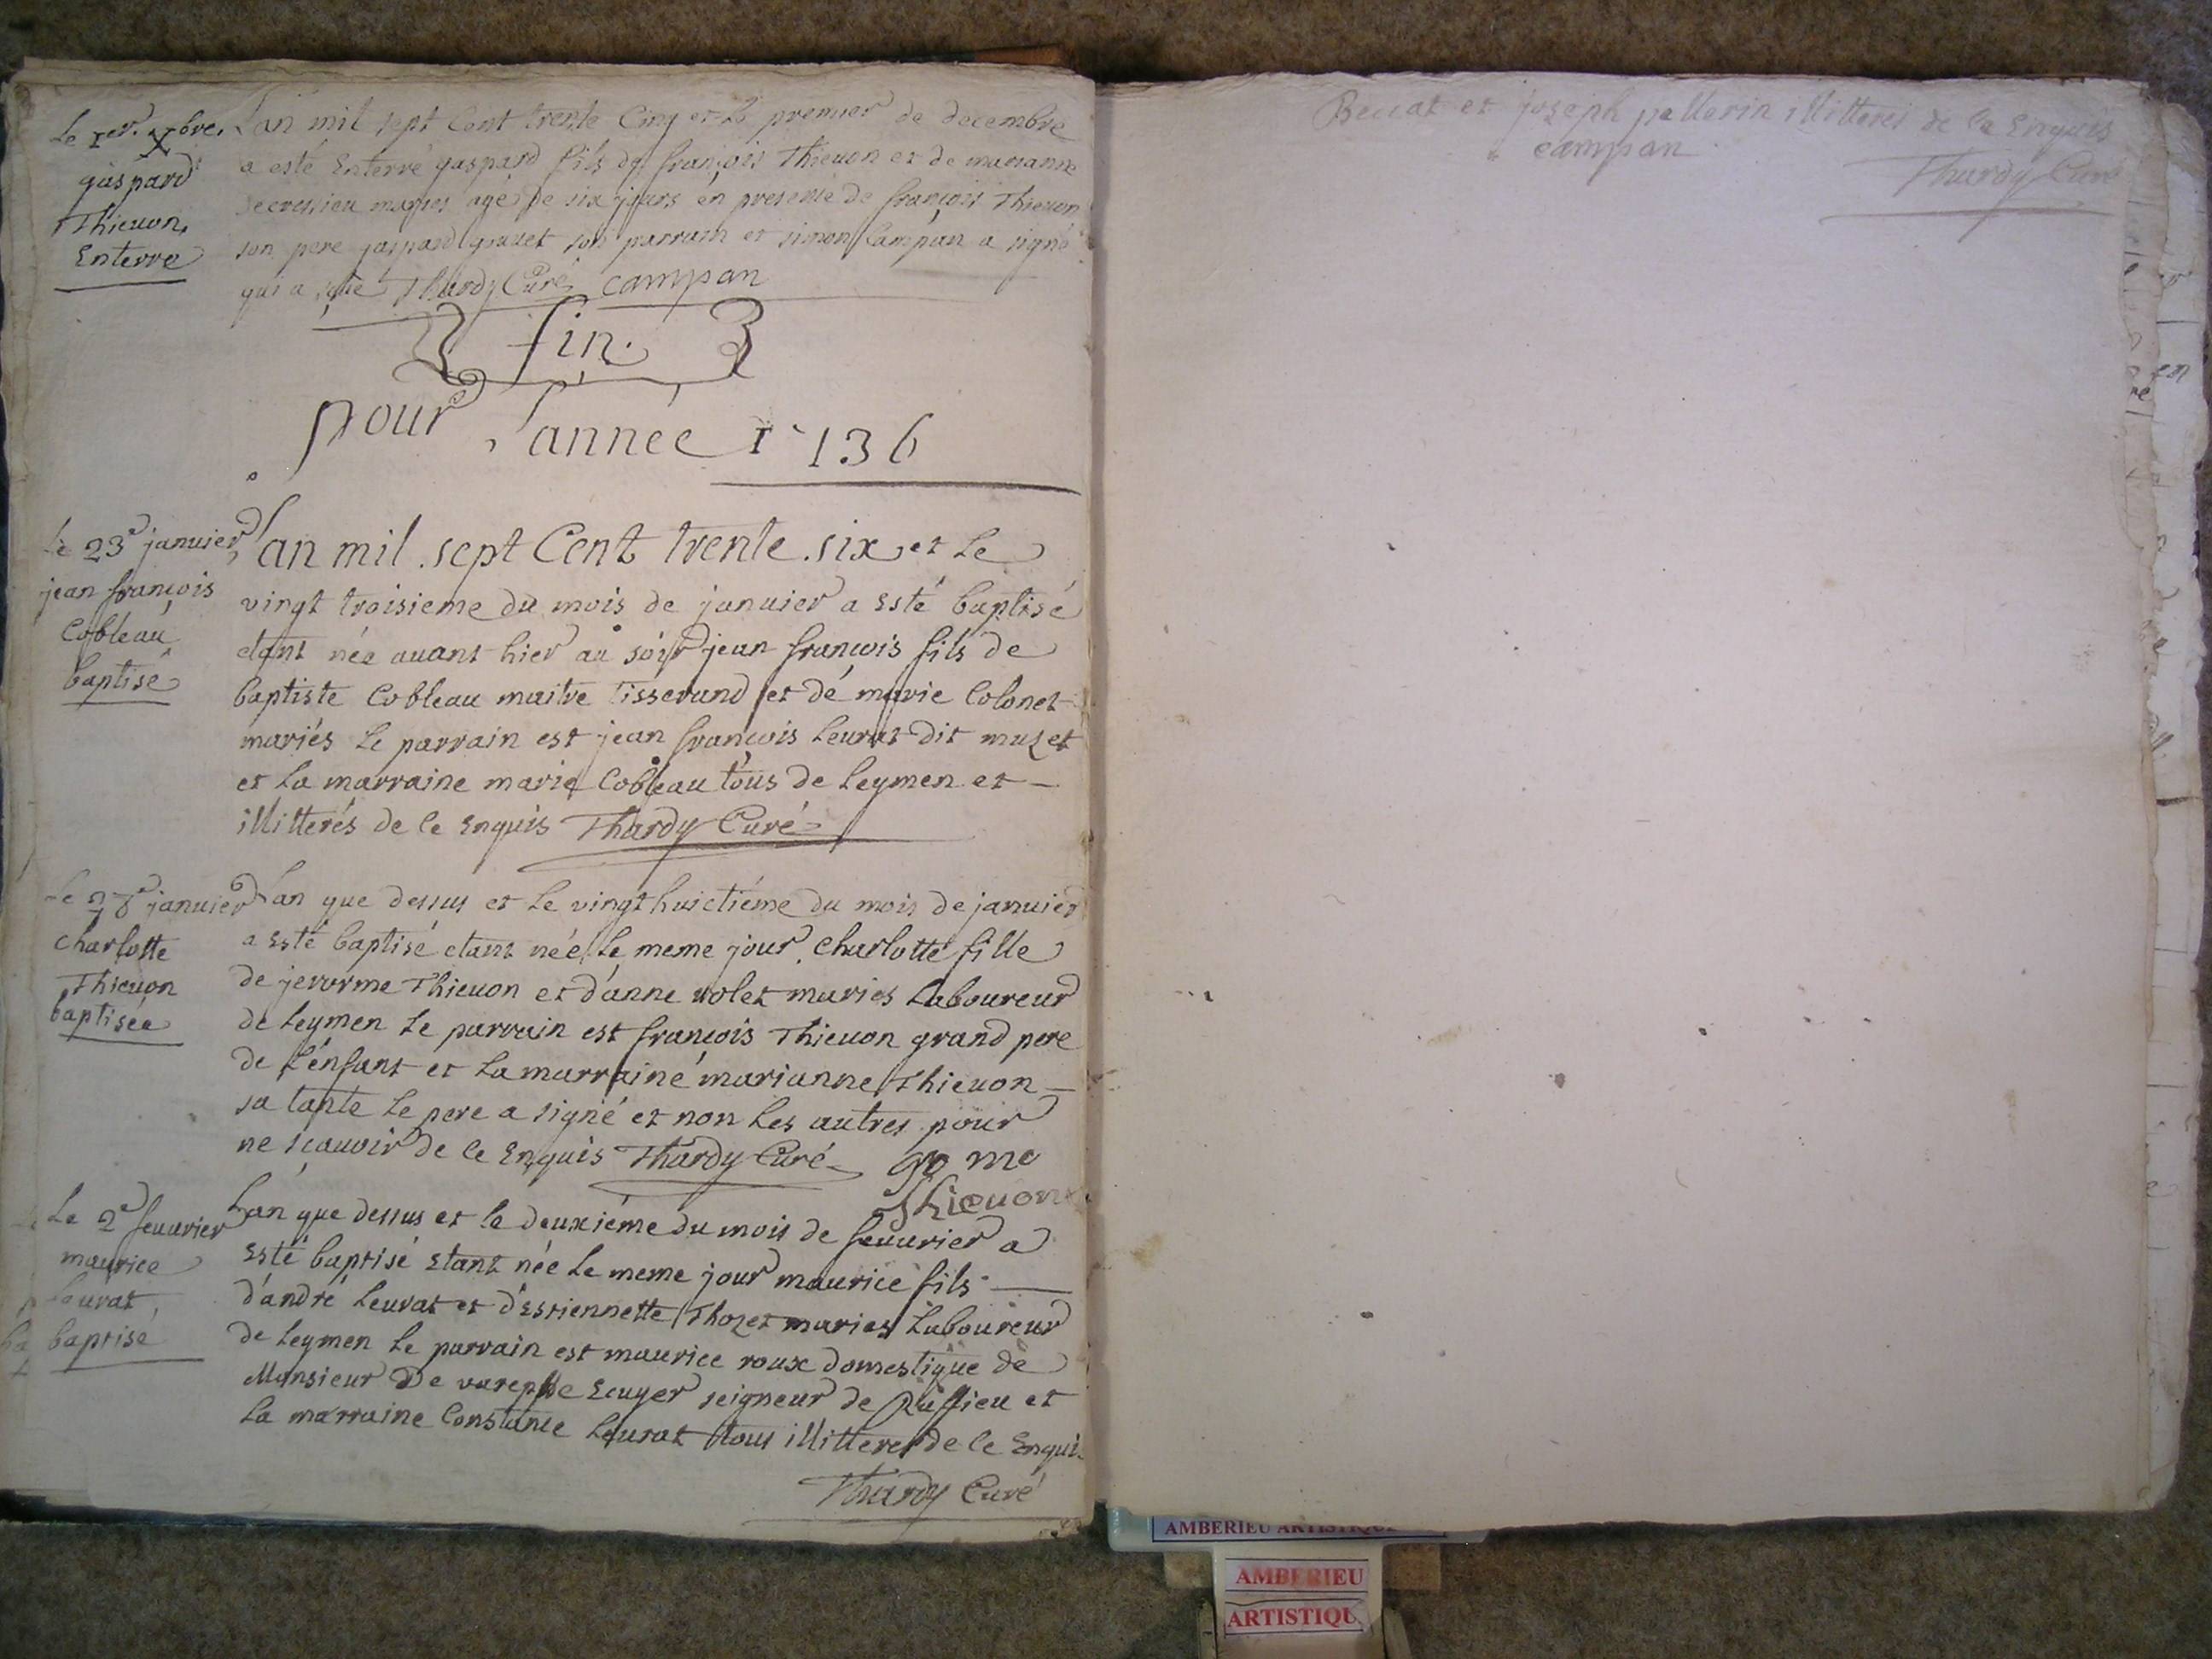 Le 1er. Xbre.
gaspard
Thieuon,
Enterre
L'an mil sept Cent trente Cinq et le premier de decembre
a esté Enterré gaspard fils de françois Thieuon et de marianne
mariés agé de six jours en presence de françois Thieuon
son pere gaspard son parrain et simon Campan a signé
qui a Thardy Curé campan
fin.
pour l'année 1736
Le 23e januier
jean françois
Cobleau
baptisé
L'an mil sept Cent trente six et Le
vingt troisieme du mois de januier a Esté baptisé
etant née auant hier au soir jean françois fils de
baptiste Cobleau maitre Tisserand et de marie Colonet
mariés Le parrain est jean françois Leurat dit muzet
et La marraine marie Cobleau tous de Leymen et
illitterés de ce Enquis Thardy Curé
Le 28e januier
charlotte
Thieuon
baptisée
L'an que dessus et Le vingt huictiéme du mois de januier
a Esté baptisé etant née Le meme jour charlotte fille
de jerorme Thieuon et d'anne rolet mariés Laboureur
de Leymen Le parrain est françois Thieuon grand pere
de L'enfant et La marraine marianne Thieuon
sa tante Le pere a signé et non Les autres pour
ne sçauoir de ce Enquis Thardy Curé
Thieuon
Le 2e feuurier
maurice
Leurat,
baptisé
L'an que dessus et le deuxiéme du mois de feuurier a
Esté baptisé Etant née Le meme jour maurice fils
d'andré Leurat et d'Estiennette Thozet mariés Laboureur
de Leymen Le parrain est maurice roux domestique de
Monsieur De vareppe Ecuyer seigneur de Ruffieu et
La marraine Constance Leurat tous illitteres de ce Enquis
Thardy Curé
Beccat et joseph pellerin illitterés de ce Enquis
campan
Thardy Curé
AMBERIEU ARTISTIQUE
AMBERIEU
ARTISTIQU